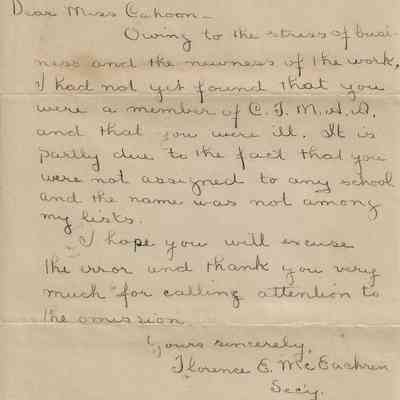 Dear Miss Cahoon -
Owing to the stress of busi-
ness and the newness of the work,
I had not yet found that you
were a member of C. T. M. A. A.
and that you were ill. It is
partly due to the fact that you
were not assigned to any school
and the name was not among
my lists.
I hope you will excuse
the error and thank you very
much for calling attention to
the omission.
Yours sincerely,
Florence E. McEachren
Sec'y.